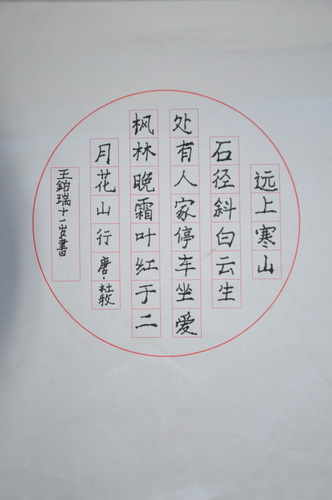 远上寒山
石径斜白云生
处有人家停车坐爱
枫林晚霜叶红于二
月花山行唐·杜牧
王铂瑞十一岁書